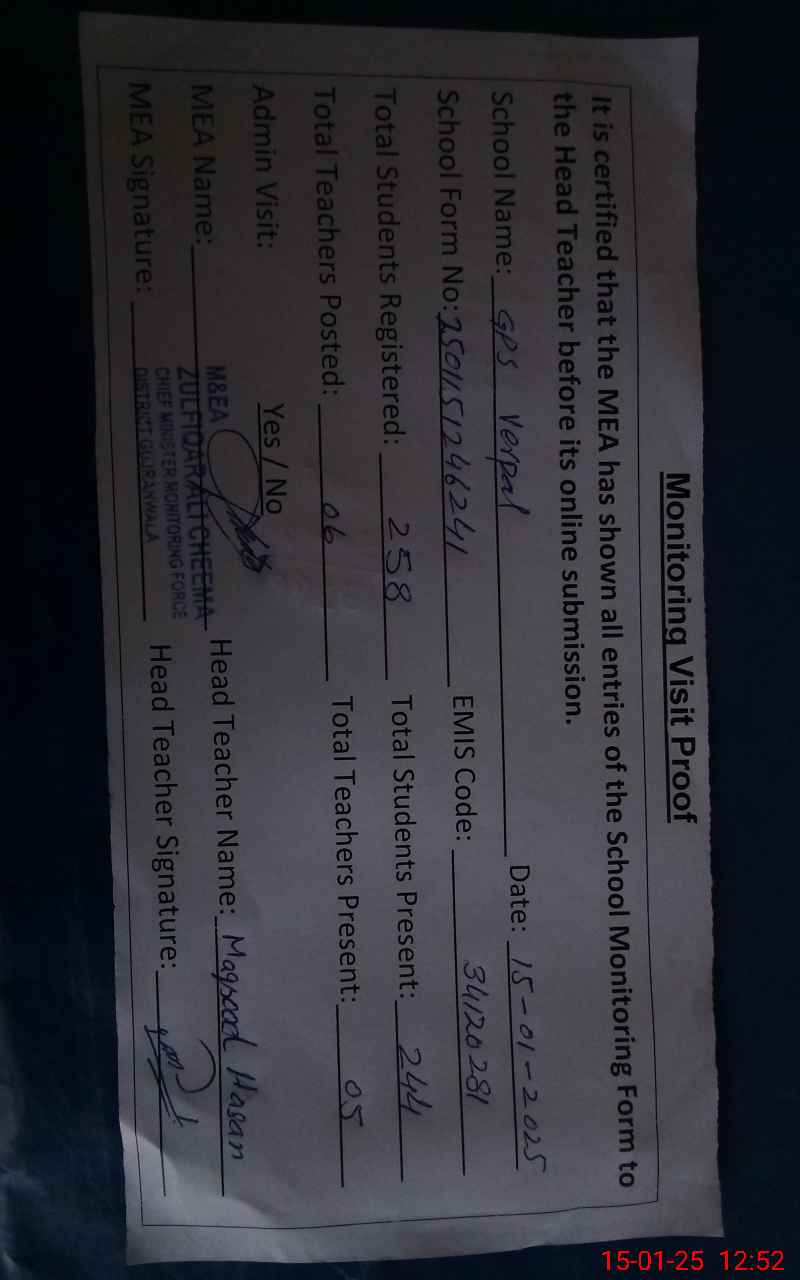 Monitoring Visit Proof
It is certified that the MEA has shown all entries of the School Monitoring Form to
the Head Teacher before its online submission.
School Name: GPS Verpal Date: 15-01-2025
School Form No: 2501151246241 EMIS Code: 34120281
Total Students Registered: 258 Total Students Present: 244
Total Teachers Posted: 06 Total Teachers Present: 05
Admin Visit: Yes / No
M&EA
MEA Name: ZULFIQAR ALI CHEEMA Head Teacher Name: Maqsood Hasan
CHIEF MINISTER MONITORING FORCE
MEA Signature: DISTRICT GUJRANWALA Head Teacher Signature:
15-01-25 12:52